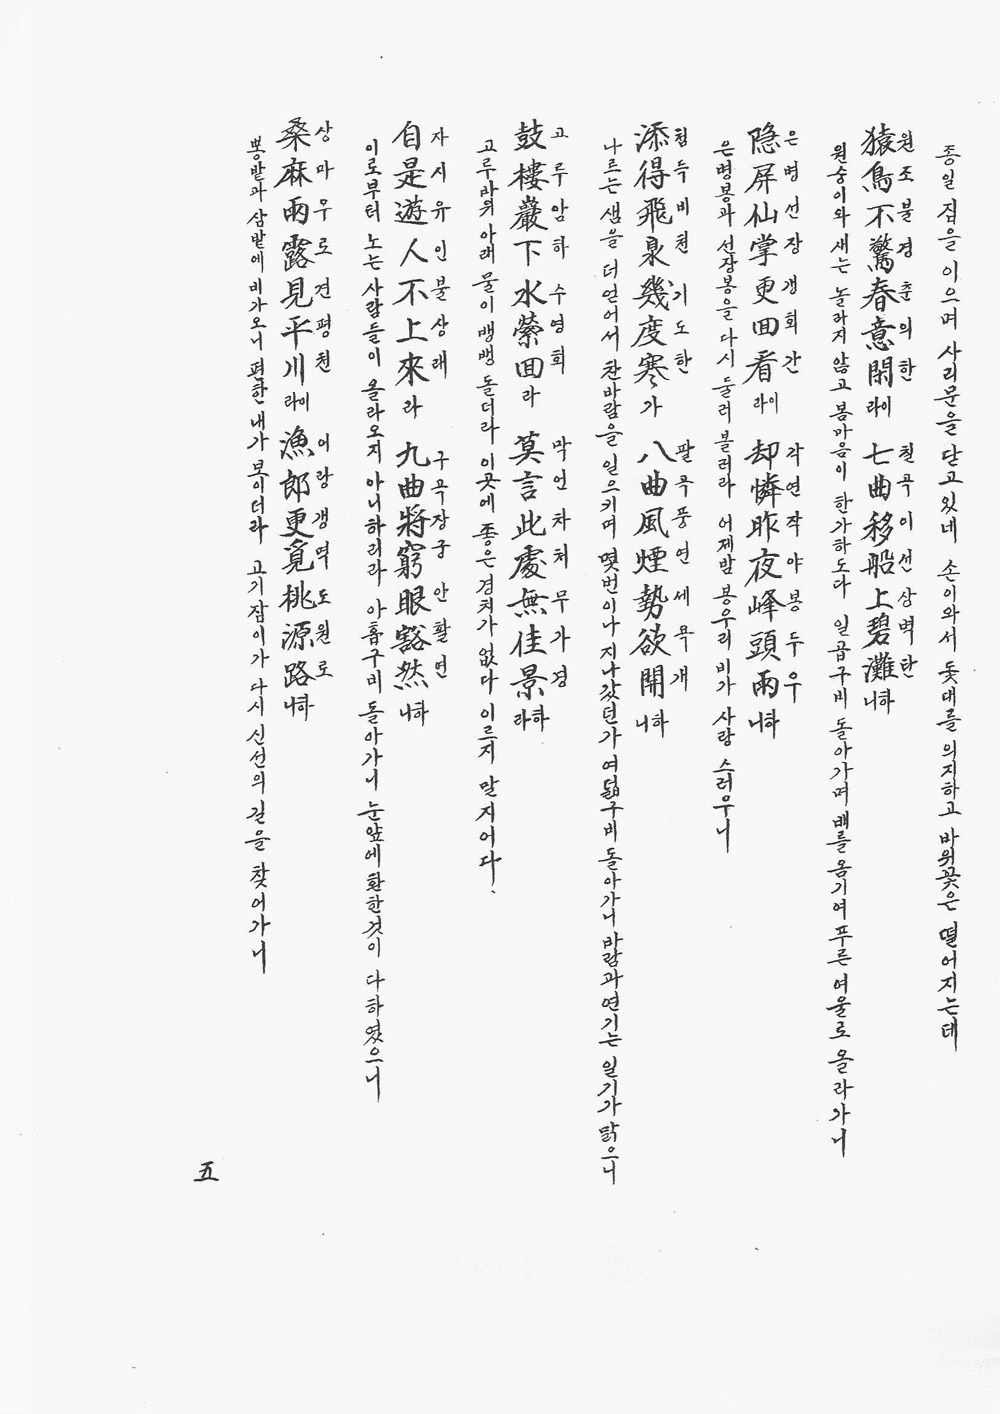 종일 집을 이으며 사리문을 닫고있네 손이와서 돛대를 의지하고 바위꽃은 떨어지는데
원조불경춘의한 칠곡이선상벽탄
猿鳥不驚春意閑라이 七曲移船上碧灘니하
원숭이와 새는 놀라지 않고 봄마음이 한가하도다 일곱구비 돌아가며 배를 옴기여 푸른 여울로 올라가니
은병선장갱회간 각연작야봉두우
隐屏仙掌更回看라이 却憐昨夜峰頭雨니하
은병봉과 선장봉을 다시 둘러 볼러라 어제밤 봉우리 비가 사랑 스러우니
첨득비천기도한 팔곡풍연세욕개
添得飛泉幾度寒가 八曲風煙勢欲開니하
나르는 샘을 더 얻어서 찬바람을 일으키며 몇번이나 지나갔던가 여덟구비 돌아가니 바람과 연기는 일기가 맑으니
고루암하수영회 막언차처무가경
鼓樓巖下水縈回라 莫言此處無佳景라하
고루바위 아래 물이 뱅뱅 돌더라 이곳에 좋은 경치가 없다 이르지 말지어다.
자시유인불상래 구곡장궁안활연
自是遊人不上來라 九曲將窮眼豁然니하
이로부터 노는 사람들이 올라오지 아니하리라 아홉구비 돌아가니 눈앞에 환한것이 다하였으니
상마우로견평천 어랑갱멱도원로
桑麻雨露見平川라이 漁郎更覓桃源路니하
뽕밭과 삼밭에 비가오니 편한 내가 보이더라 고기잡이가 다시 신선의 길을 찾어가니
五